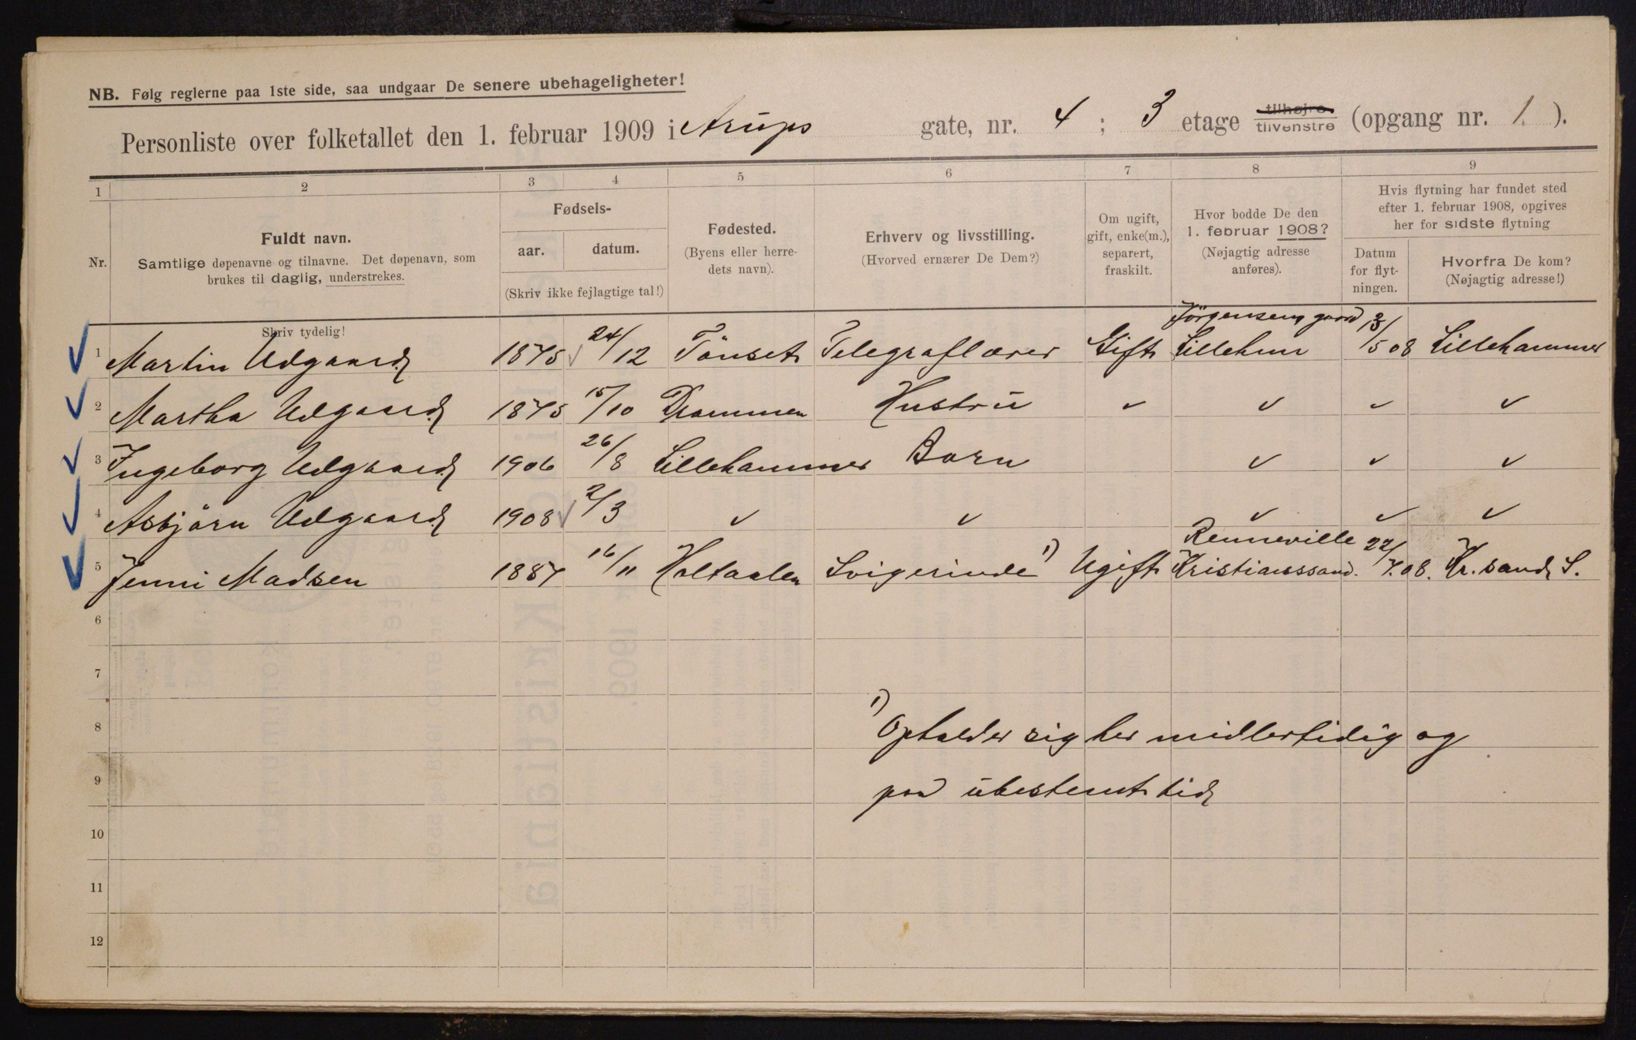 NB. Følg reglerne paa 1ste side, saa undgaar De senere ubehageligheter!
Personliste over folketallet den 1. februar 1909 i Arups gate, nr. 4 ; 3 etage tilhøjre tilvenstre (opgang nr. 1.).
1 2 3 4 5 6 7 8 9
Nr. Fuldt navn. Samtlige døpenavne og tilnavne. Det døpenavn, som brukes til daglig, understrekes.
Skriv tydelig!
Fødsels-
aar. datum.
(Skriv ikke fejlagtige tal!)
Fødested. (Byens eller herredets navn).
Erhverv og livsstilling. (Hvorved ernærer De Dem?)
Om ugift, gift, enke(m.), separert, fraskilt.
Hvor bodde De den 1. februar 1908? (Nøjagtig adresse anføres).
Hvis flytning har fundet sted efter 1. februar 1908, opgives her for sidste flytning
Datum for flytningen.
Hvorfra De kom? (Nøjagtig adresse!)
1 Martin Udgaard 1875 24/12 Tönset Telegraflærer Gift Jörgensens gaard Lillehmr 13/5 08 Lillehammer
2 Martha Udgaard 1875 15/10 Drammen Hustru
3 Ingeborg Udgaard 1906 26/8 Lillehammer Barn
4 Asbjörn Udgaard 1908 2/3
5 Jenni Madsen 1887 16/11 Holtaalen Svigerinde 1) Ugift Renneville Kristianssand. 22/7.08. Kr.sand S.
6
7
8 1) Opholder sig her midlertidig og
9 paa ubestemt tid
10
11
12